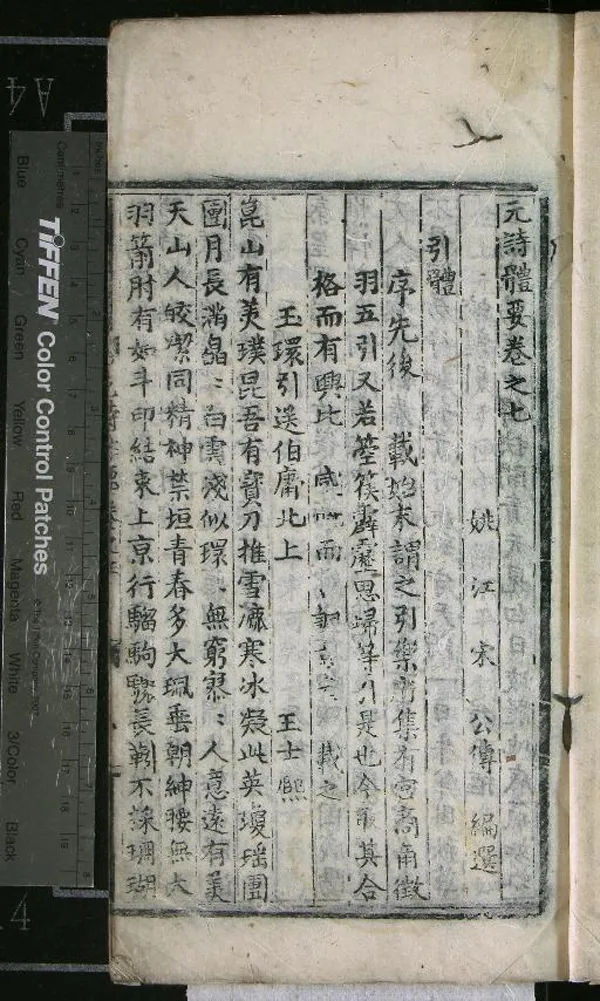 元詩體要卷之七
姚江宋 公傳 編選
引體
序先後 載始末謂之引樂府集有宮商角徵
羽五引又若箜篌霹靂思歸等引是也今取其合
格而有興比 感 而 載之
玉環引送伯庸北上 王士熙
崑山有美璞昆吾有寶刀推雪漉寒冰凝此英瓊瑶團
團月長滿皛皛白雲淺似環 無窮寥寥人意遠有美
天山人皎潔同精神禁垣青春多大珮垂朝紳腰無大
羽箭肘有如斗印結束上京行騮駒驟長靷不採珊瑚
TIFFEN Color Control Patches
Centimetres
Inches
Blue Cyan Green Yellow Red Magenta White 3/Color Black
A4